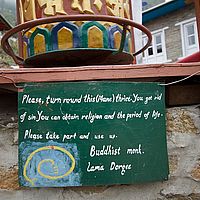 Please, turn round this (Mane) thrice. You get rid
of sin. You can obtain religion and the period of life.
Please take part and use us.
Buddhist monk.
Lama Dorgee